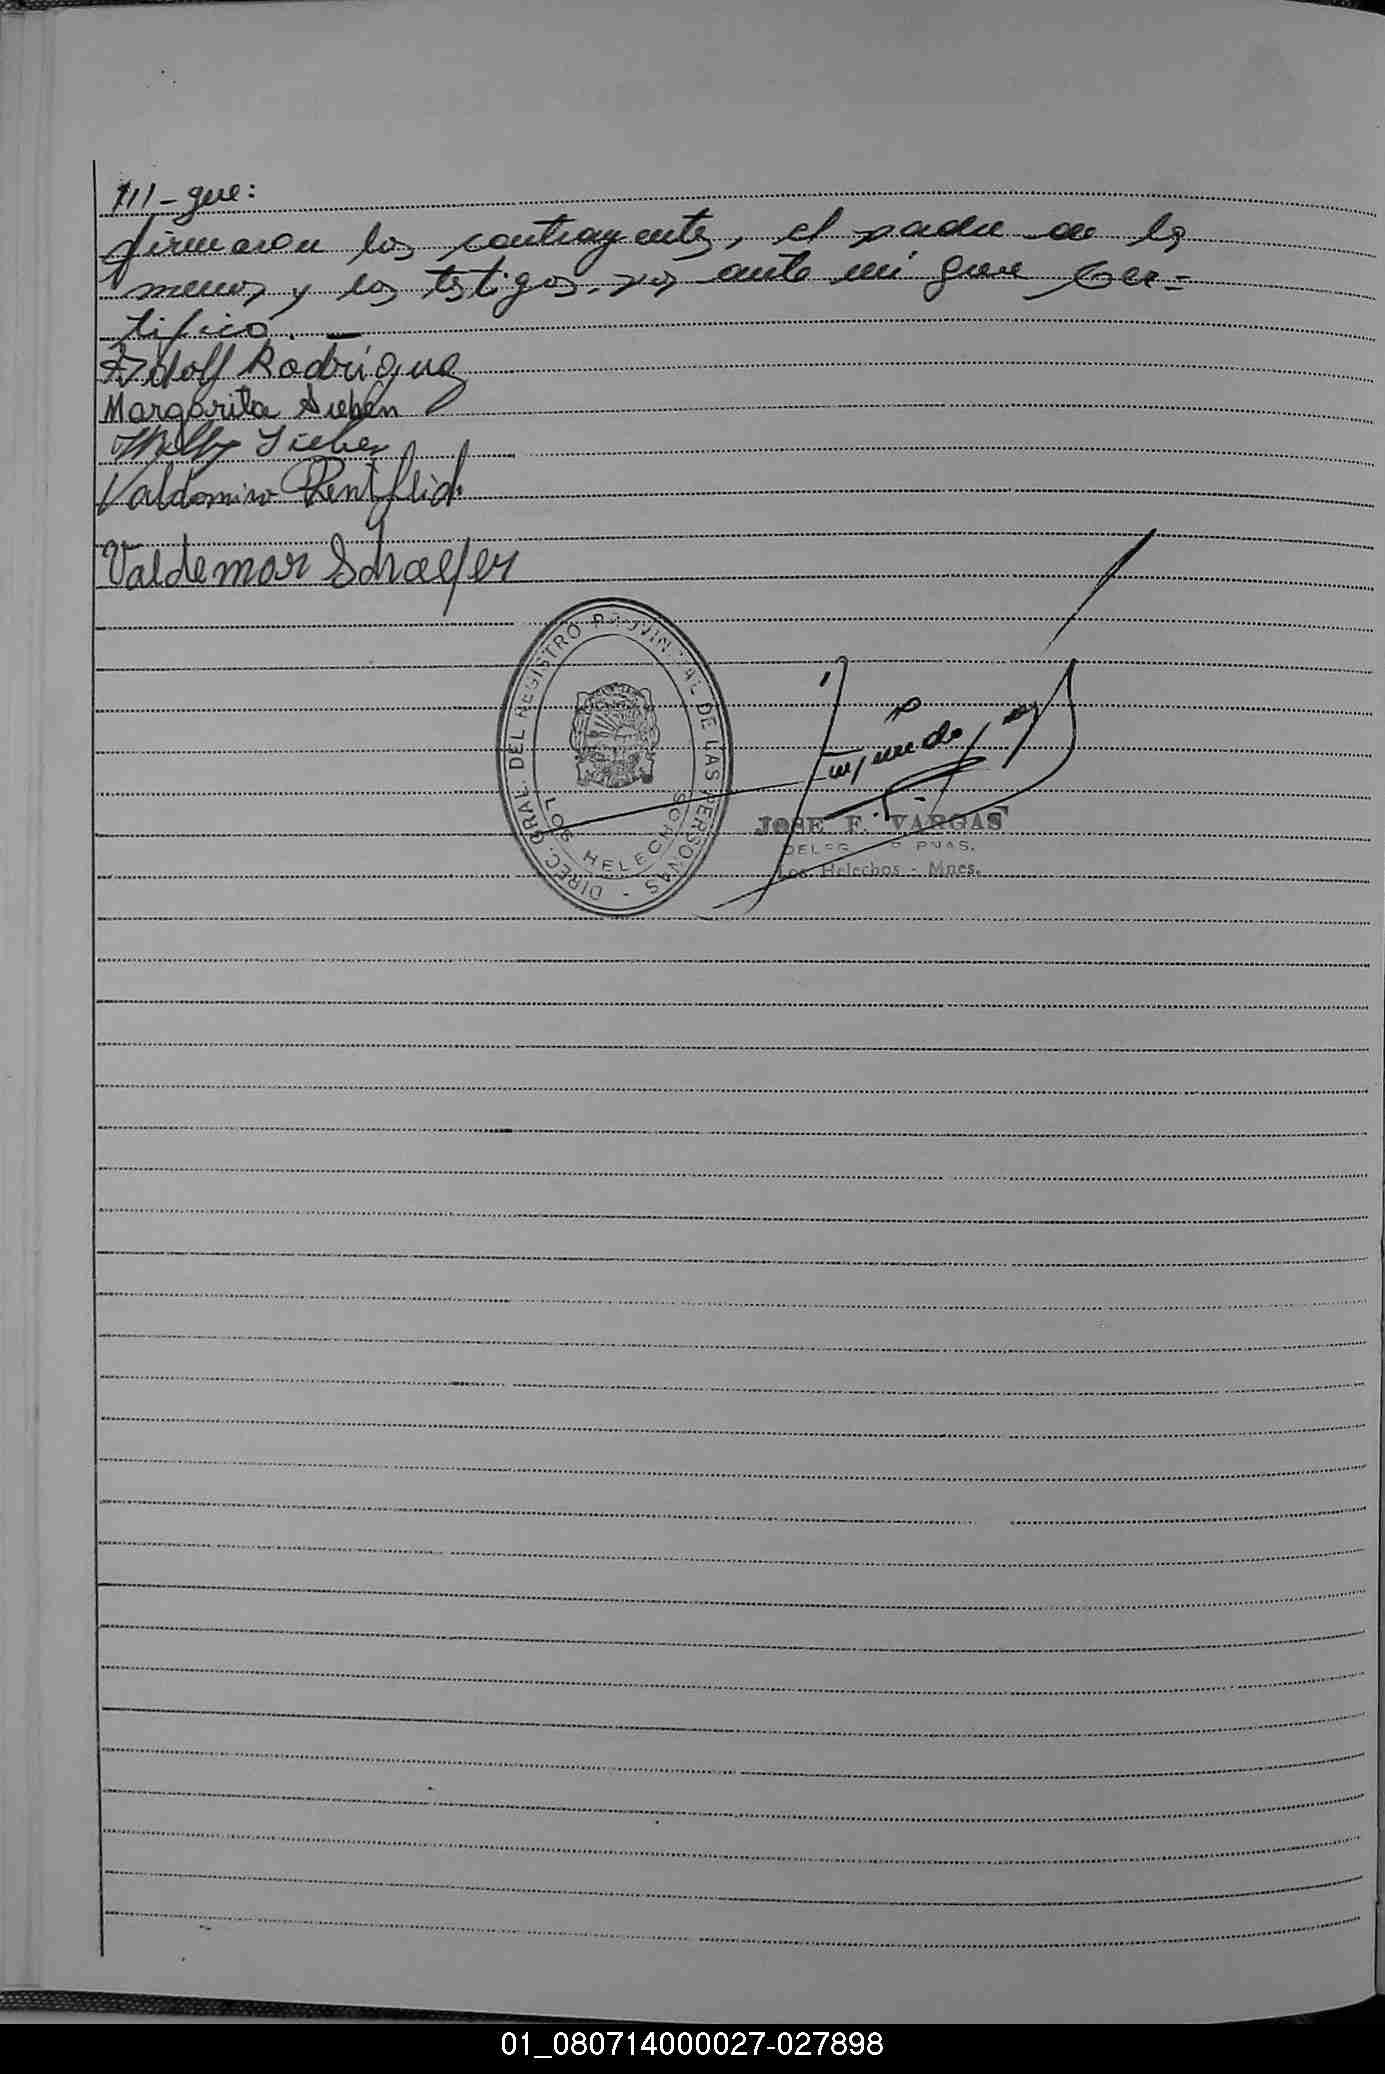 ///- que:
firmaron los contrayentes, el padre de la
menor y los testigos. ante mi que Cer-
tifico. —
Adolf Rodriguez
Margarita Sieben
Willy Sieben
Valdomiro
Valdemar Schaefer
DIREC. GRAL. DEL REGISTRO PROVINCIAL DE LAS PERSONAS -
LOS HELECHOS
JOSE F. VARGAS
Los Helechos - Mnes.
01_080714000027-027898